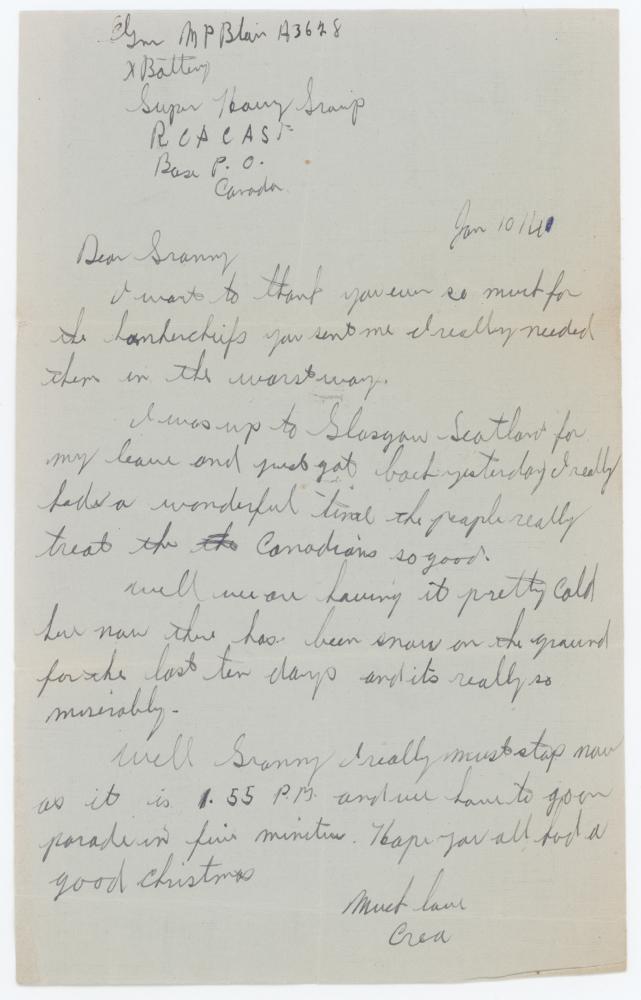 Gnr M P Blair A3628
X Battery
Super Heavy Group
R C A C A S F
Base P. O.
Canada
Jan 10/41
Dear Granny
I want to thank you ever so much for
the hankerchiefs you sent me I really needed
them in the worst way.
I was up to Glasgow Scotland for
my leave and just got back yesterday I really
had a wonderful time the people really
treat the the Canadians so good.
Well we are having it pretty cold
here now there has been snow on the ground
for the last ten days and its really so
miserably.
Well Granny I really must stop now
as it is 1.55 P.M. and we have to go on
parade in five minites. Hope you all had a
good christmas
Much love
Crea